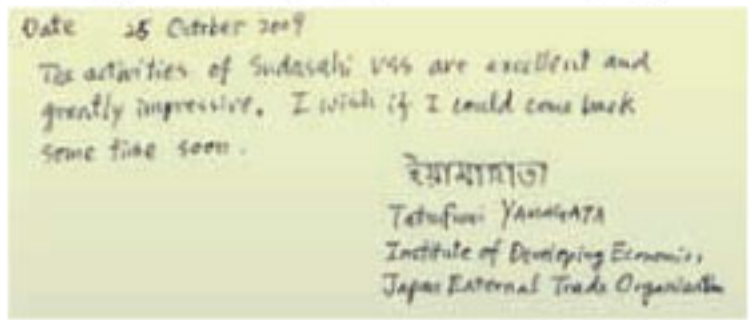 Date 25 October 2009
The activities of Sudasahi VSS are excellent and
greatly impressive. I wish if I could come back
some time soon.
ইয়ামাগাতা
Tatsufumi YAMAGATA
Institute of Developing Economies,
Japan External Trade Organization